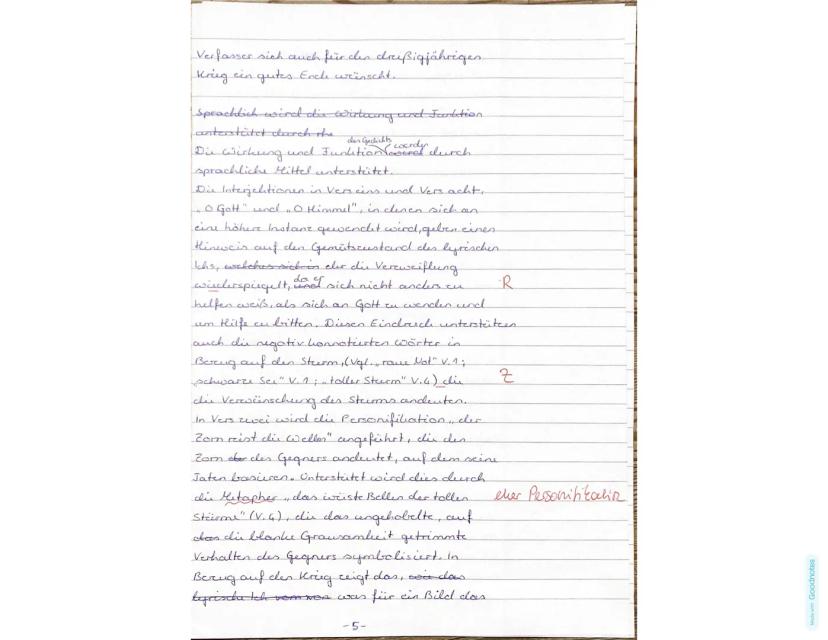 Verfasser sich auch für den dreißigjährigen
Krieg ein gutes Ende wünscht.
Sprachlich wird die Wirkung und Funktion
unterstützt durch die
des Gedichts werden
Die Wirkung und Funktion wird durch
sprachliche Mittel unterstützt.
Die Interjektionen in Vers eins und Vers acht,
„O Gott" und „O Himmel", in denen sich an
eine höhere Instanz gewendet wird, geben einen
Hinweis auf den Gemütszustand des lyrischen
Ichs, welches sich in der die Verzweiflung
da es
wiederspiegelt, und sich nicht anders zu R
helfen weiß, als sich an Gott zu wenden und
um Hilfe zu bitten. Diesen Eindruck unterstützen
auch die negativ konnotierten Wörter in
Bezug auf den Sturm, (Vgl. „raue Not" V.1;
„schwarze See" V.1; „toller Sturm" V.4) die Z
die Verwünschung des Sturms andeuten.
In Vers zwei wird die Personifikation „der
Zorn reist die Wellen" angeführt, die den
Zorn des Gegners andeutet, auf dem seine
Taten basieren. Unterstützt wird dies durch
die Metapher „das wüste Bellen der tollen eher Personifikation
Stürme" (V.4), die das ungehobelte, auf
das die blanke Grausamkeit getrimmte
Verhalten des Gegners symbolisiert. In
Bezug auf den Krieg zeigt das, wie das
lyrische Ich vom was für ein Bild das
-5-
Made with Goodnotes